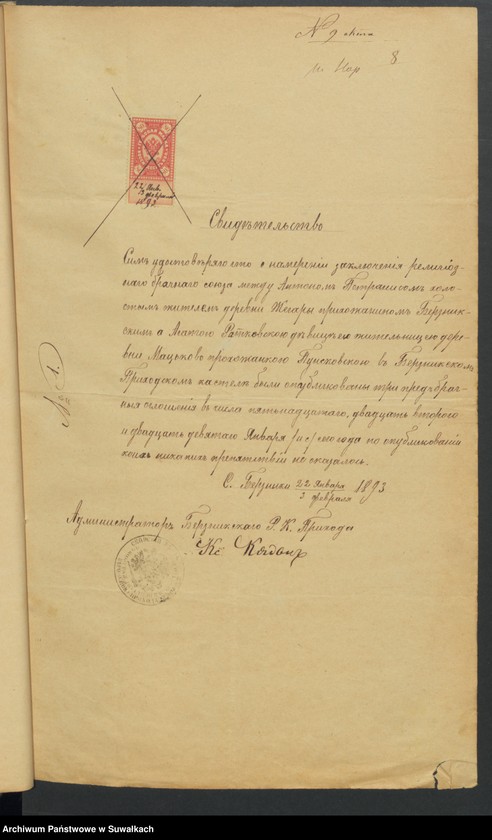 № 9 акта
8
22 Янв.
3 февраля
93
Свидѣтельство
Симъ удостовѣряю что о намѣреніи заключенія религіоз-
наго брачнаго союза между Антономъ Петранисомъ холо-
стымъ жителемъ деревни Жегары прихожаниномъ Берзник-
скимъ а Агатою Ратковскою дѣвицею жительницею дере-
вни Мацьково прихожанкою Пунсковскою въ Берзникскомъ
Приходскомъ костелѣ были опубликованы три предъбрач-
ныя оглашенія въ числа пятьнадцатаго, двадцать втораго
и двадцать девятаго Января сего года по опубликованіи
коихъ никакихъ препятствій не оказалось.
С. Берзники 22 Января 1893
3 февраля
Администраторъ Берзникскаго Р. К. Прихода
Кс
№ 1.
Archiwum Państwowe w Suwałkach